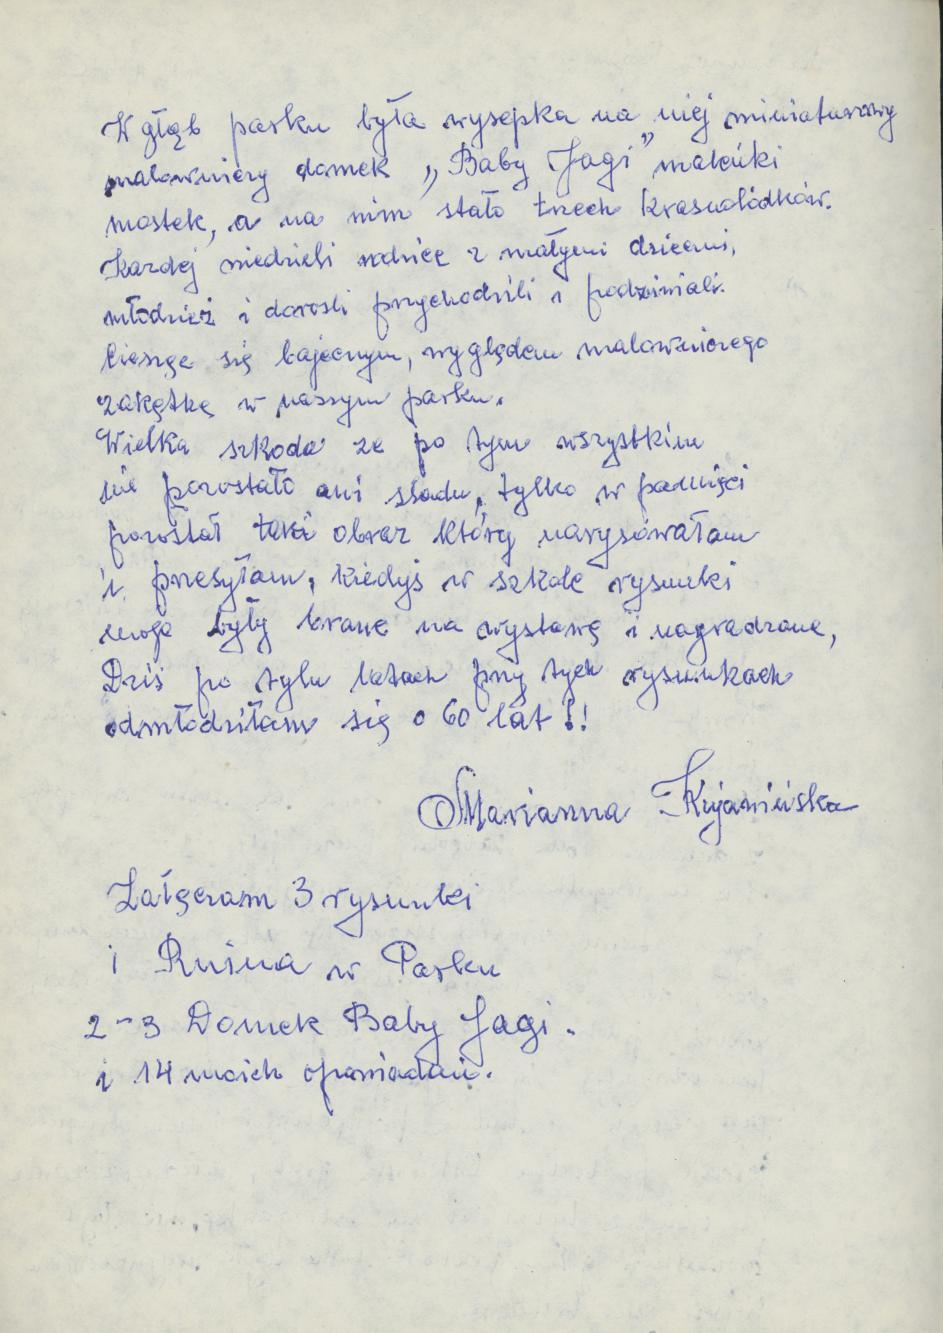 W głąb parku była wysepka na niej miniaturowy
malowniczy domek „Baby Jagi” maleńki
mostek, a na nim stało trzech krasnolódków.
Kazdej niedzieli rodzice z małymi dziecmi,
młodzież i dorosli przychodzili i podziwiali.
Ciesząc się bajecznym, wyglądem malowniczego
zakątka w naszym parku.
Wielka szkoda ze po tym wszystkim
nie pozostało ani sladu, tylko w pamięci
pozostał taki obraz który narysowałam
i przesyłam, kiedyś w szkole rysunki
moje były brane na wystawę i nagradzane,
Dziś po tylu latach przy tych rysunkach
odmłodziłam się o 60 lat!!
Marianna
Załączam 3 rysunki
1 Ruina w Parku
2-3 Domek Baby Jagi.
i 14 moich opowiadań.